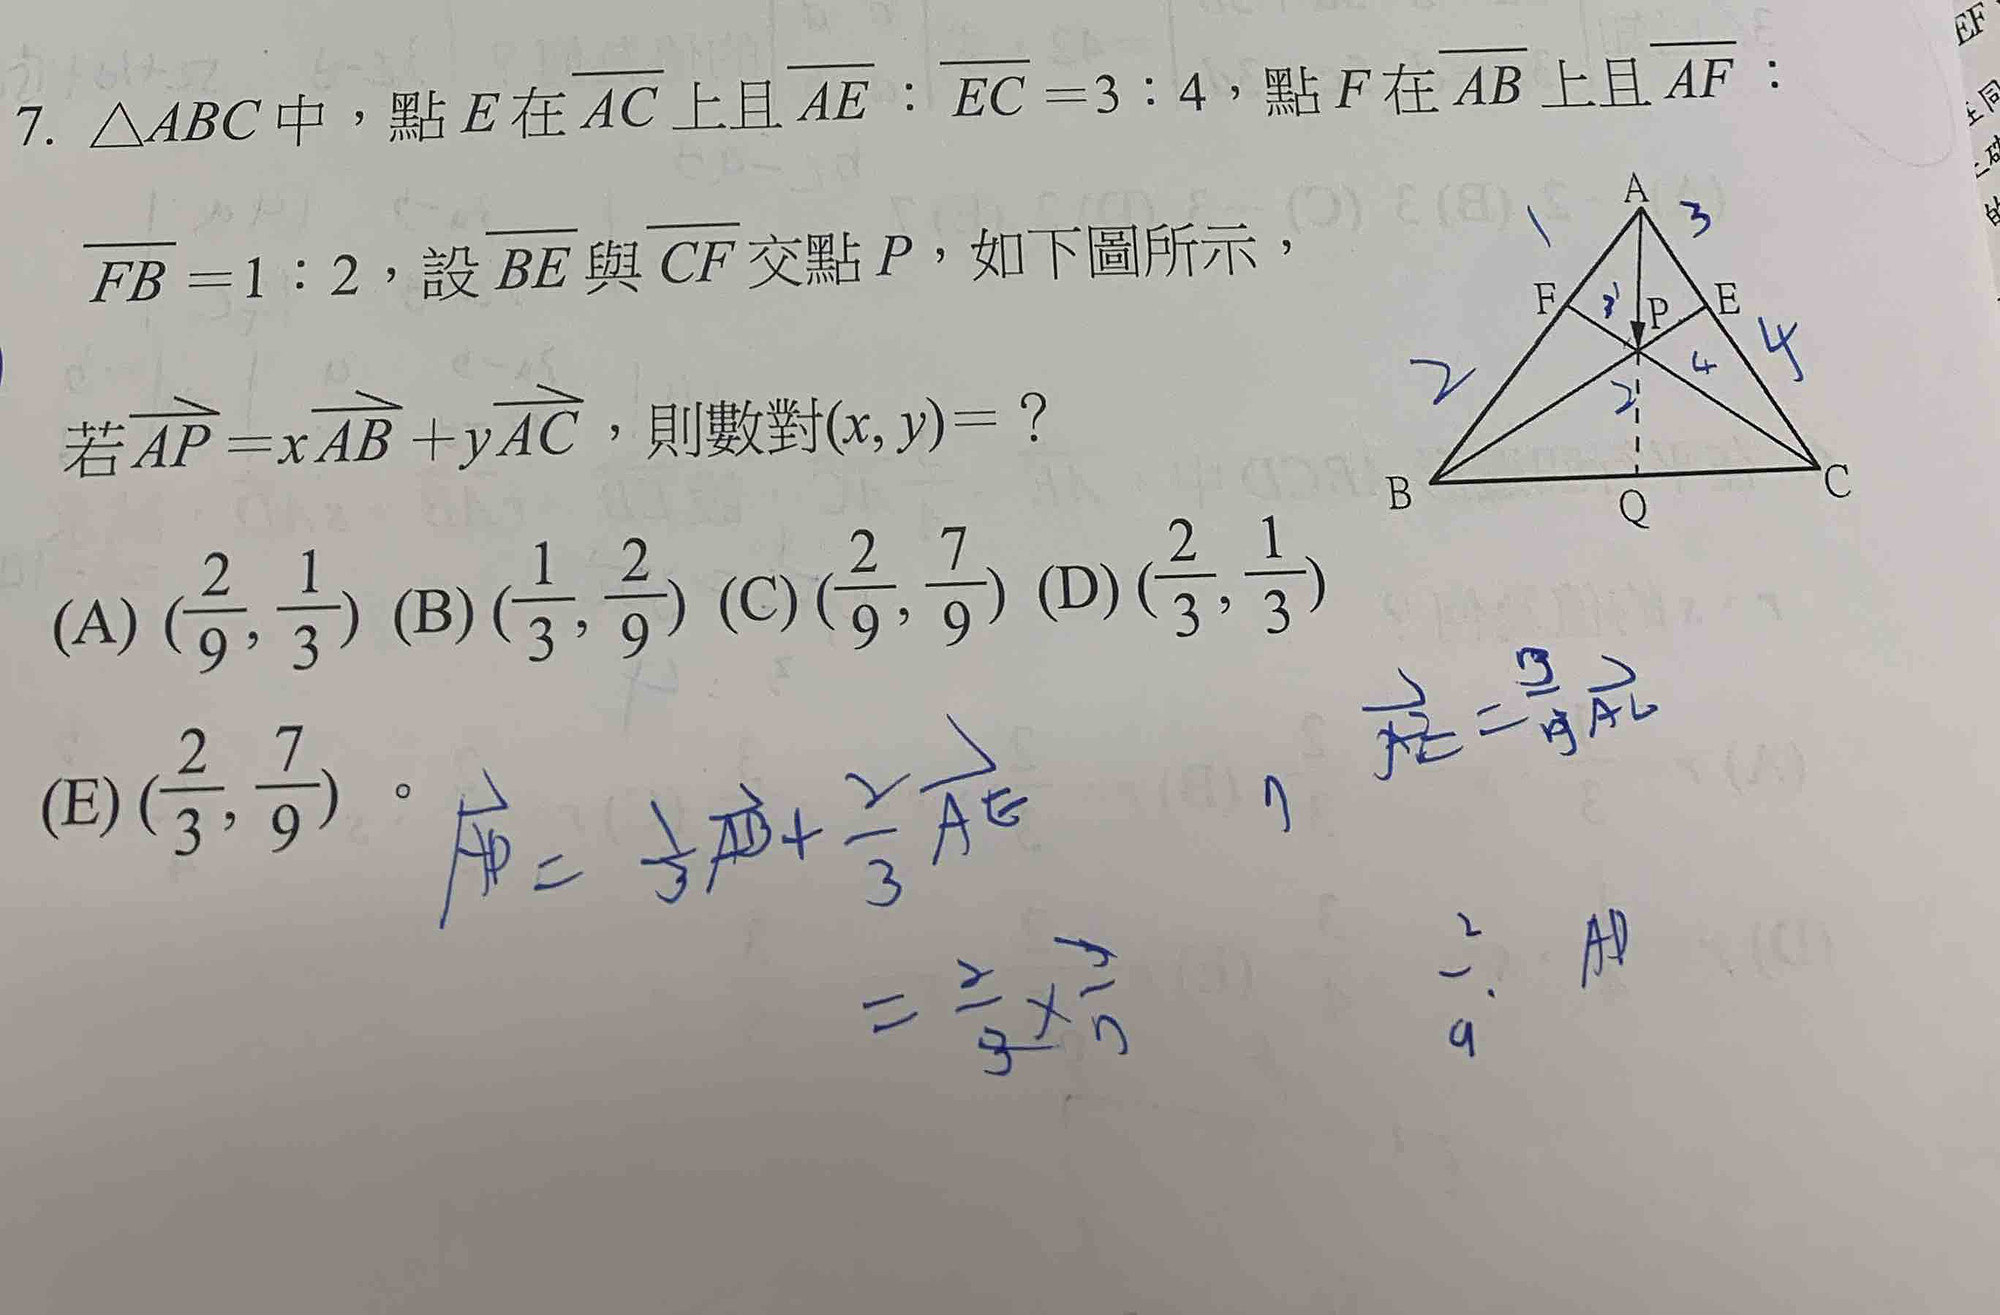 7. △ABC 中，點 E 在 AC 上且 AE：EC＝3：4，點 F 在 AB 上且 AF：
FB＝1：2，設 BE 與 CF 交點 P，如下圖所示，
若 AP＝xAB＋yAC，則數對(x, y)＝？
(A) (2/9, 1/3) (B) (1/3, 2/9) (C) (2/9, 7/9) (D) (2/3, 1/3)
(E) (2/3, 7/9)。
A
1
3
F
3
P
E
2
4
4
2
B
Q
C
AP = 1/3 AB + 2/3 AE
2/9
AP
EF